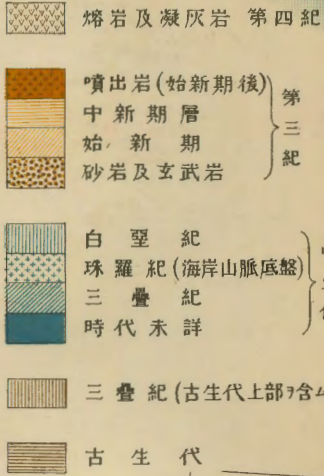 熔岩及凝灰岩 第四紀
噴出岩(始新期後)
中新期層
始新期
砂岩及玄武岩
第三紀
白堊紀
珠羅紀(海岸山脈底盤)
三疊紀
時代未詳
三疊紀(古生代上部ヲ含ム
古生代